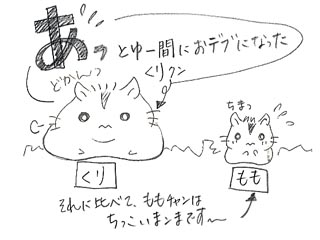 あっ とゆー間におデブになった
くりクン
どかんっ
ちまっ
くり
もも
それに比べて、ももチャンは
ちっこいまンまです〜